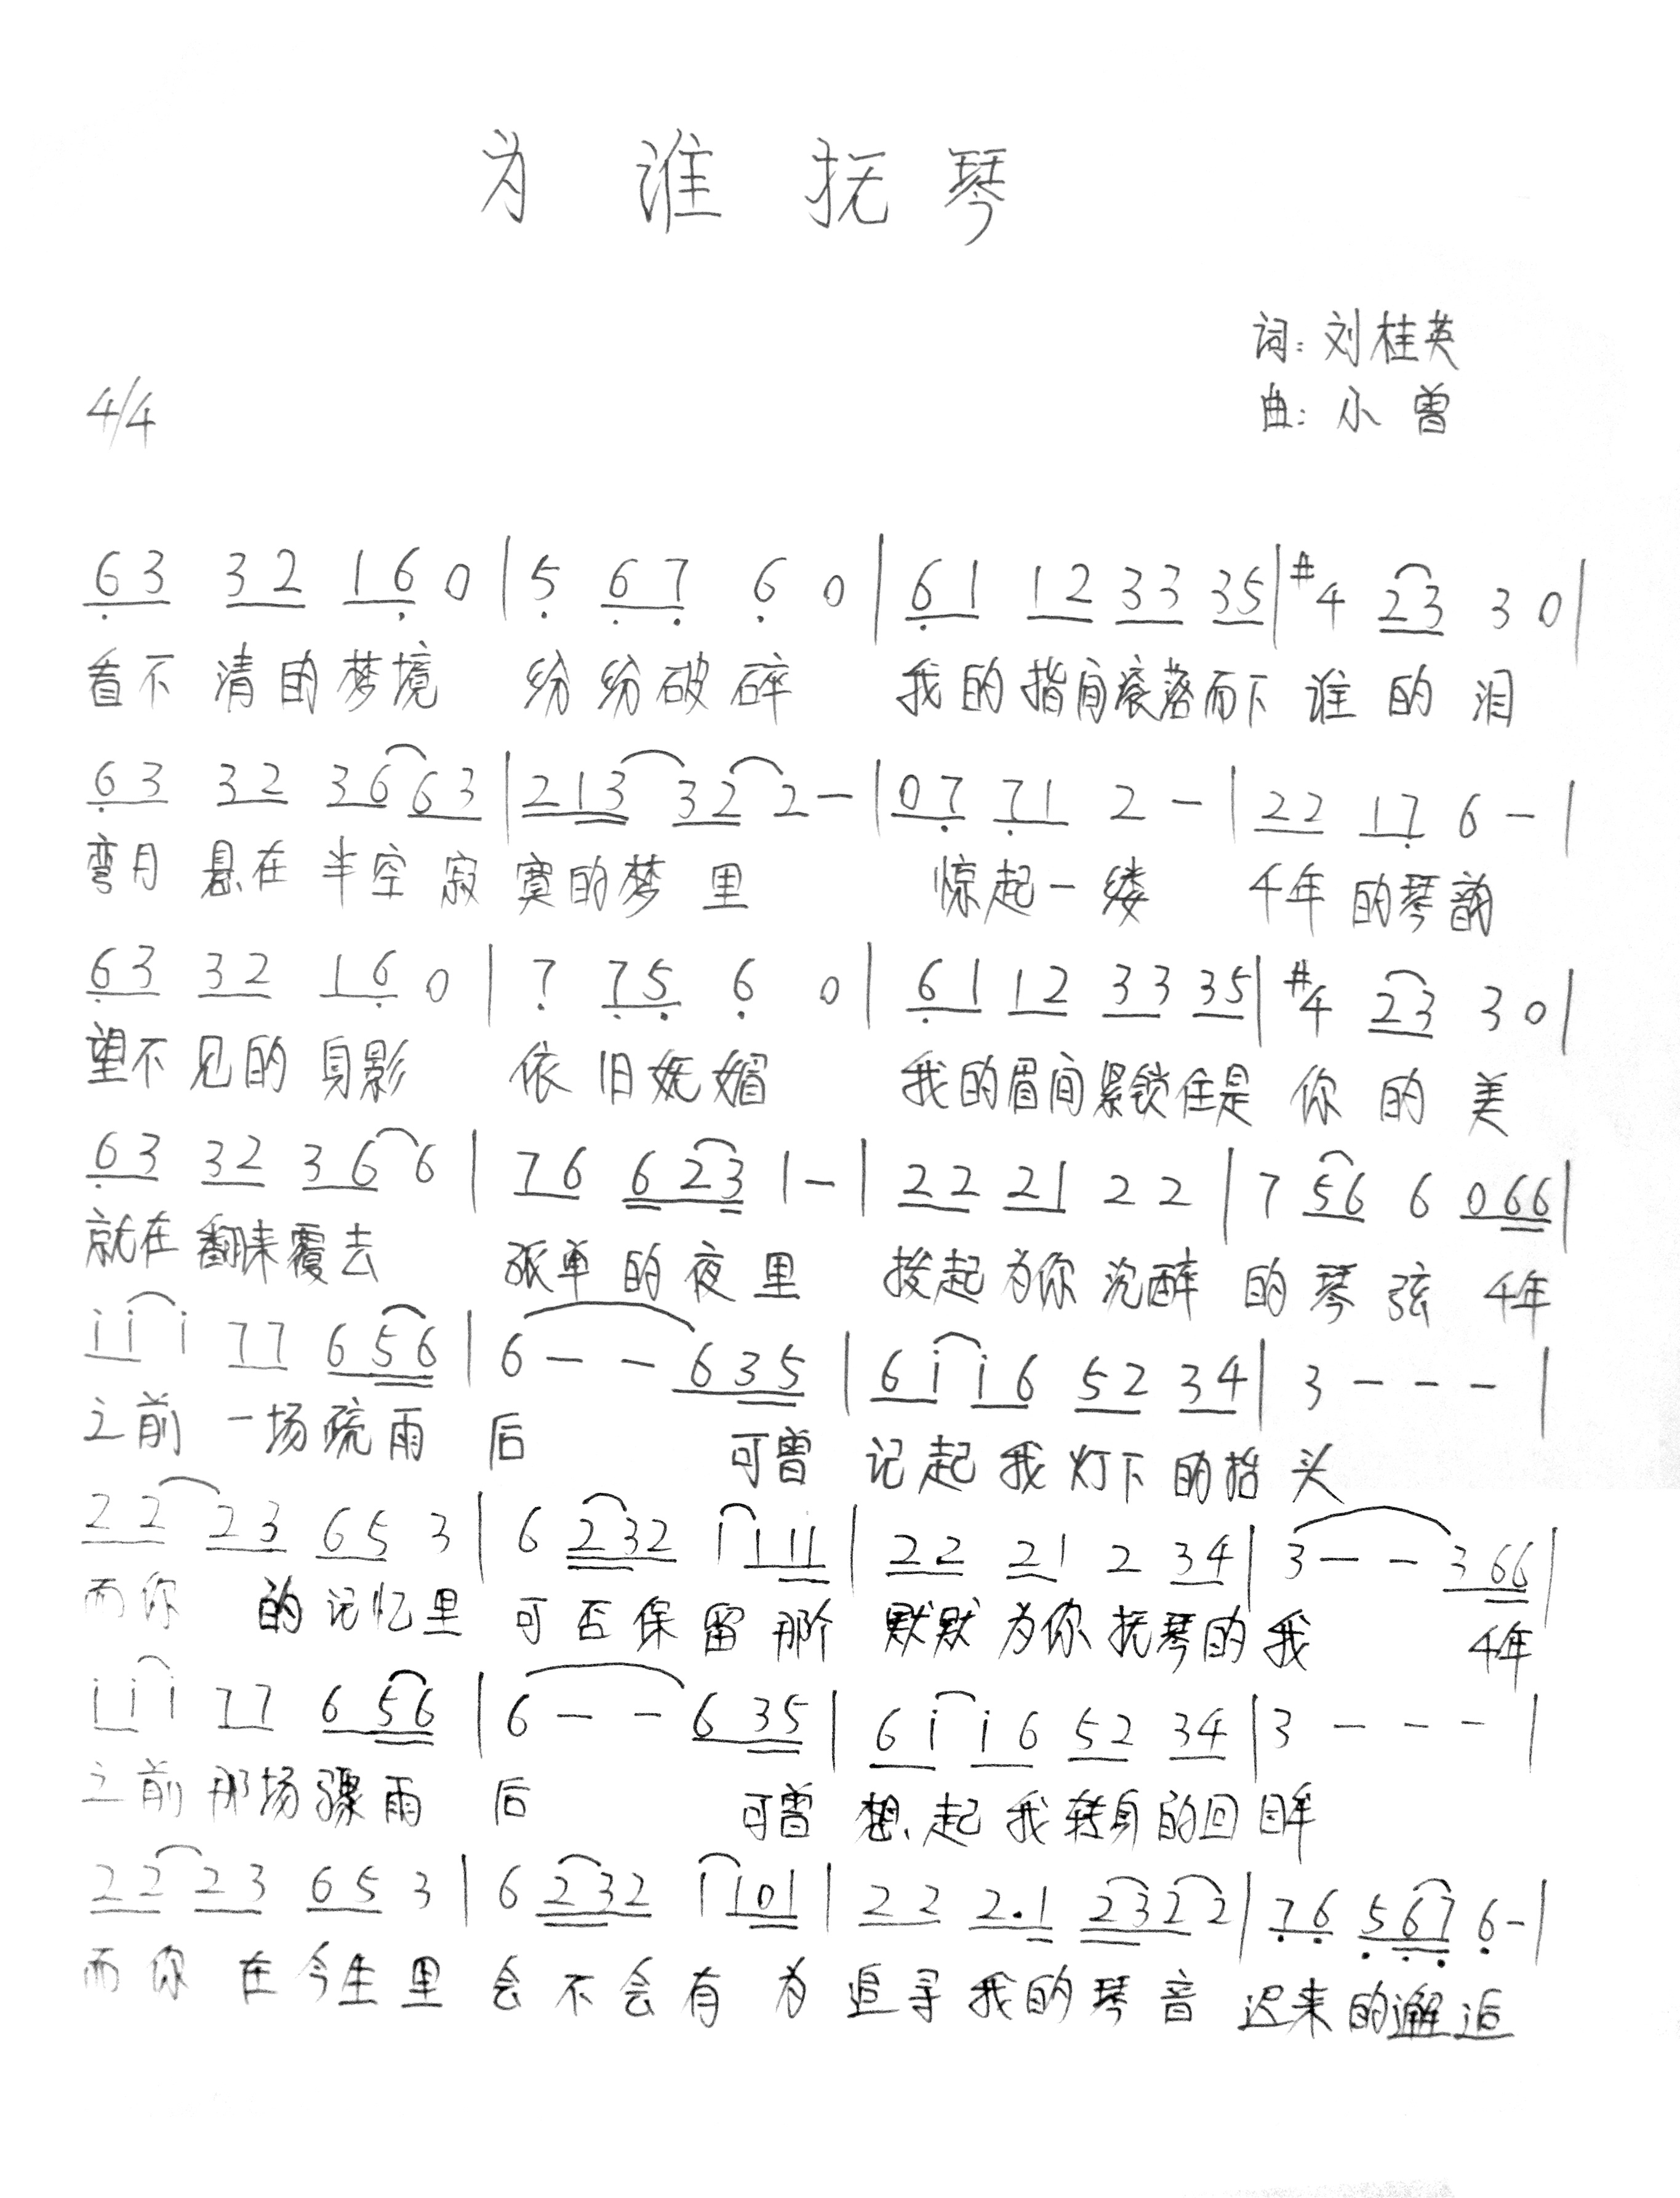 为谁抚琴
词：刘桂英
4/4
曲：小曾
63 32 16 0 | 5 67 6 0 | 61 12 33 35 | #4 23 3 0 |
看不清的梦境 纷纷破碎 我的指间滚落而下谁的泪
63 32 36 63 | 213 32 2 - | 07 71 2 - | 22 17 6 - |
弯月悬在半空寂寞的梦里 惊起一缕 千年的琴韵
63 32 16 0 | 7 75 6 0 | 61 12 33 35 | #4 23 3 0 |
望不见的身影 依旧妩媚 我的眉间紧锁住是你的美
63 32 36 6 | 76 623 1 - | 22 21 2 2 | 7 56 6 066 |
就在翻来覆去 孤单的夜里 拨起为你沉醉的琴弦 千年
ii i 77 656 | 6 - - 635 | 6i i6 52 34 | 3 - - - |
之前一场疏雨后 可曾记起我灯下的抬头
22 23 65 3 | 6 232 i 111 | 22 21 2 34 | 3 - - 366 |
而你的记忆里 可否保留那个 默默为你抚琴的我 千年
ii i 77 656 | 6 - - 635 | 6i i6 52 34 | 3 - - - |
之前那场骤雨后 可曾想起我转身的回眸
22 23 65 3 | 6 232 1 101 | 22 2.1 232 2 | 76 567 6 - |
而你在今生里 会不会有为追寻我的琴音 迟来的邂逅